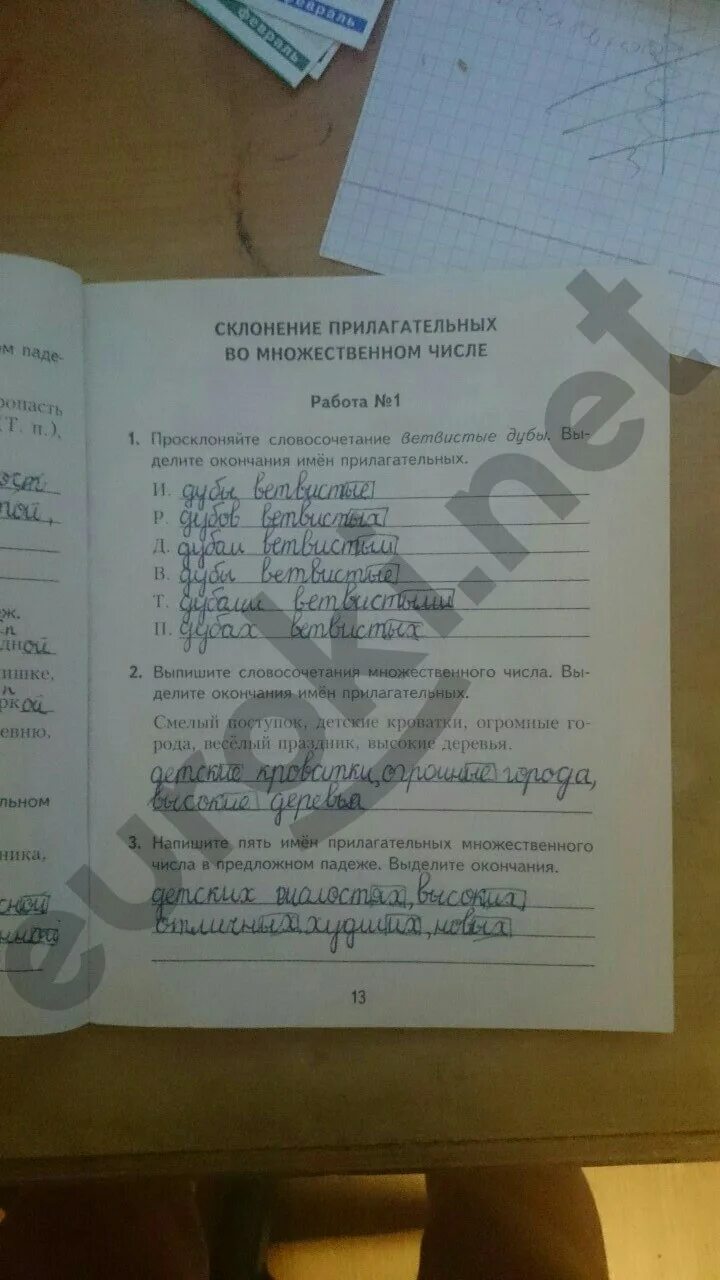 февраль
февраль
СКЛОНЕНИЕ ПРИЛАГАТЕЛЬНЫХ
ВО МНОЖЕСТВЕННОМ ЧИСЛЕ
Работа №1
1. Просклоняйте словосочетание ветвистые дубы. Вы-
делите окончания имён прилагательных.
И. дубы ветвистые
Р. дубов ветвистых
Д. дубам ветвистым
В. дубы ветвистые
Т. дубами ветвистыми
П. дубах ветвистых
2. Выпишите словосочетания множественного числа. Вы-
делите окончания имён прилагательных.
Смелый поступок, детские кроватки, огромные го-
рода, весёлый праздник, высокие деревья.
детские кроватки, огромные города,
высокие деревья
3. Напишите пять имён прилагательных множественного
числа в предложном падеже. Выделите окончания.
детских шалостях, высоких,
отличных, худших, новых
13
ом паде-
ропасть
(Т. п.),
той,
еж.
дной
ишке,
ркой
ревню,
льном
ника,
сной
нной
euroki.net